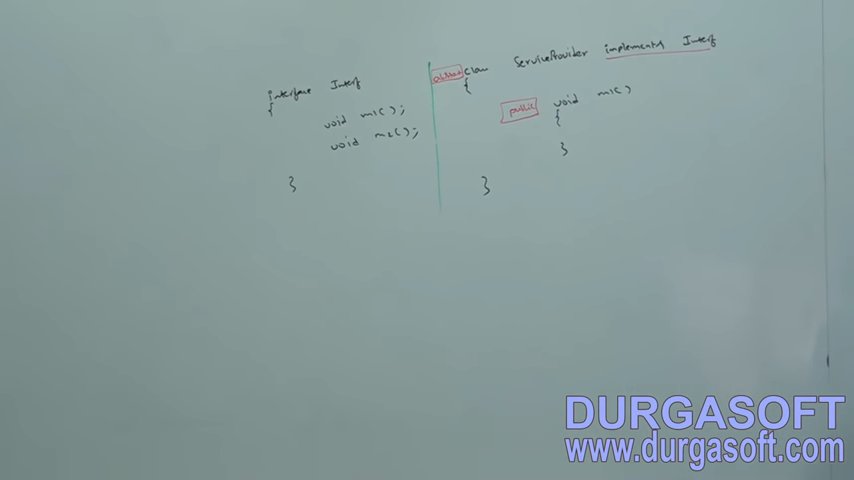 interface Interf
{
void m1();
void m2();
}
abstract class ServiceProvider implements Interf
{
public void m1()
{
}
}
DURGASOFT
www.durgasoft.com